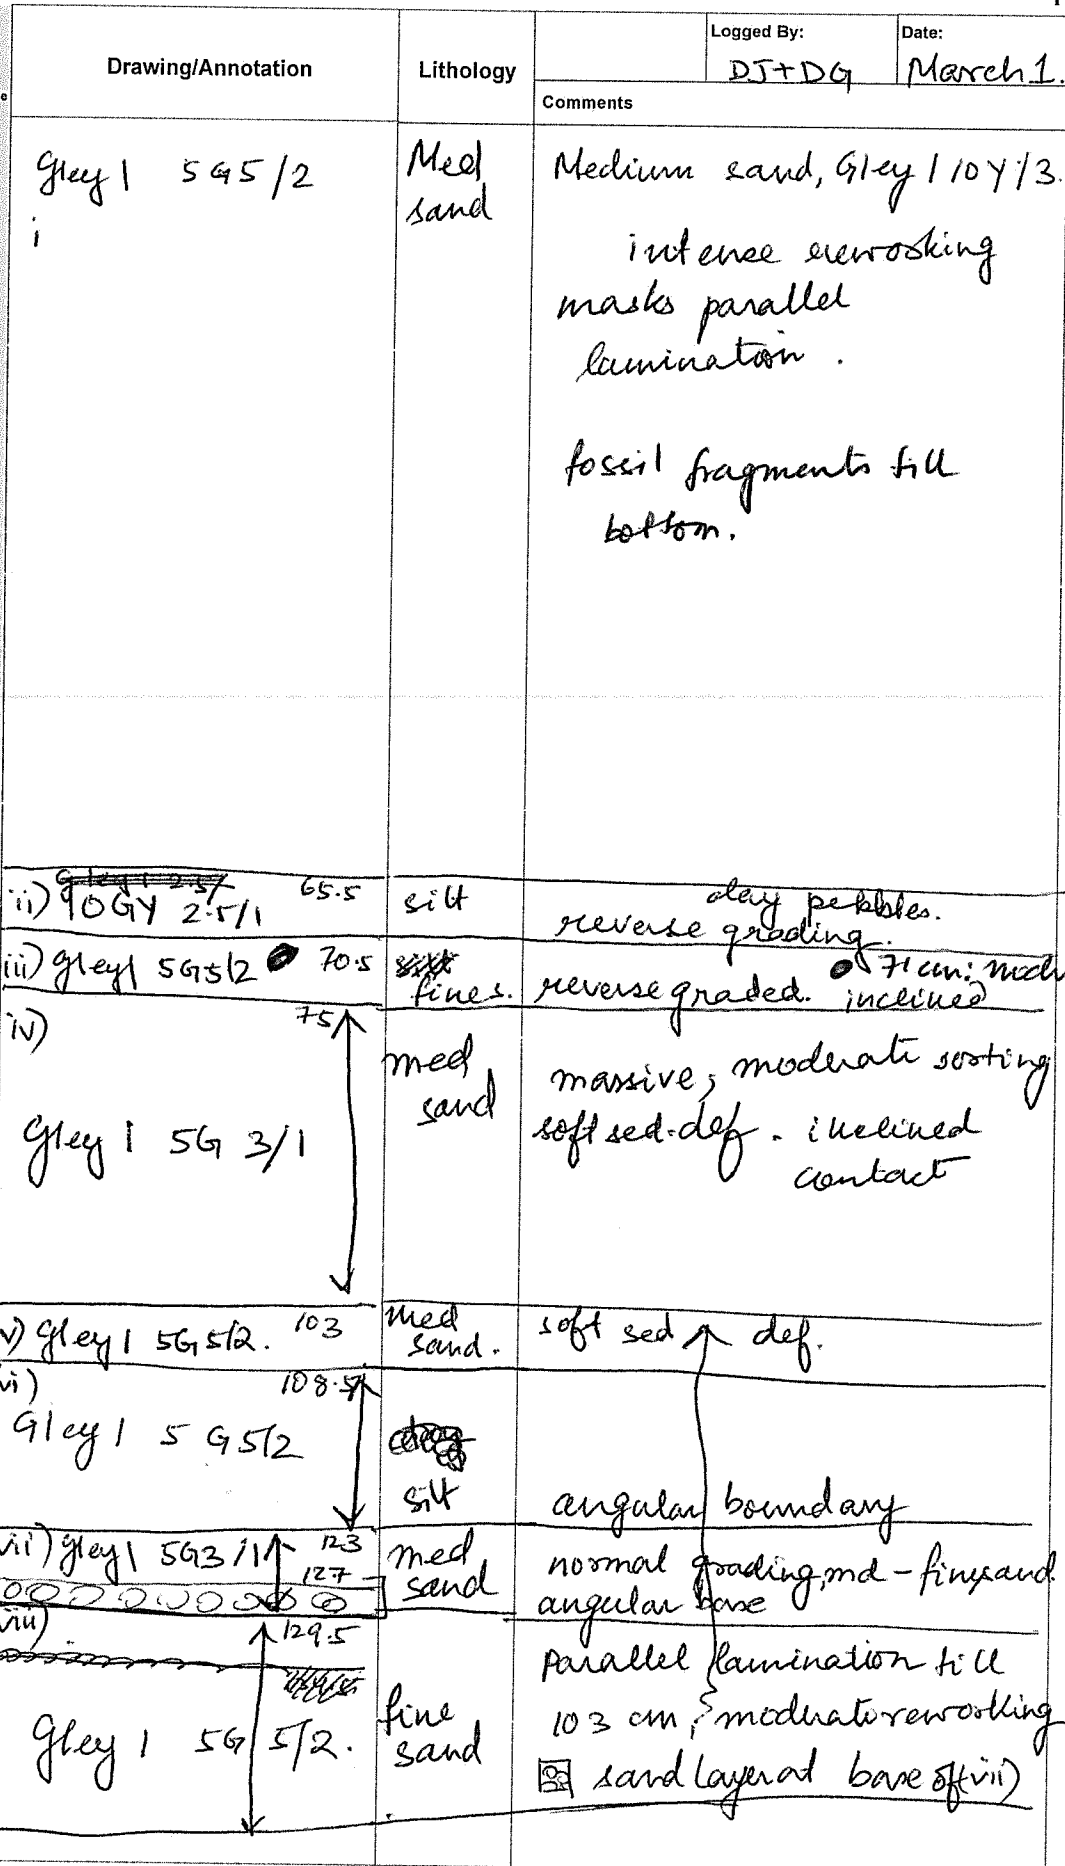 Logged By:
Date:
Drawing/Annotation
Lithology
DJ+DG
March 1.
Comments
Gley 1 5G5/2
i
Med
sand
Medium sand, Gley 1 10Y/3.
intense reworking
masks parallel
lamination.
fossil fragments till
bottom.
ii) 10GY 2.5/1 65.5
silt
clay pebbles.
reverse grading.
iii) gley1 5G5/2 70.5
fines.
reverse graded.
71 cm:
inclined
iv) 75
Gley 1 5G 3/1
med
sand
massive, moderate sorting
soft sed. def. inclined
contact
v) Gley 1 5G 5/2. 103
med
sand.
soft sed def.
vi) 108.5
Gley 1 5 G5/2
silt
angular boundary
vii) gley1 5G3/1 123
127
med
sand
normal grading, md - finesand.
angular base
viii) 129.5
Gley 1 5G 5/2.
fine
sand
Parallel lamination till
103 cm, moderate reworking
sand layer at base of (vii)